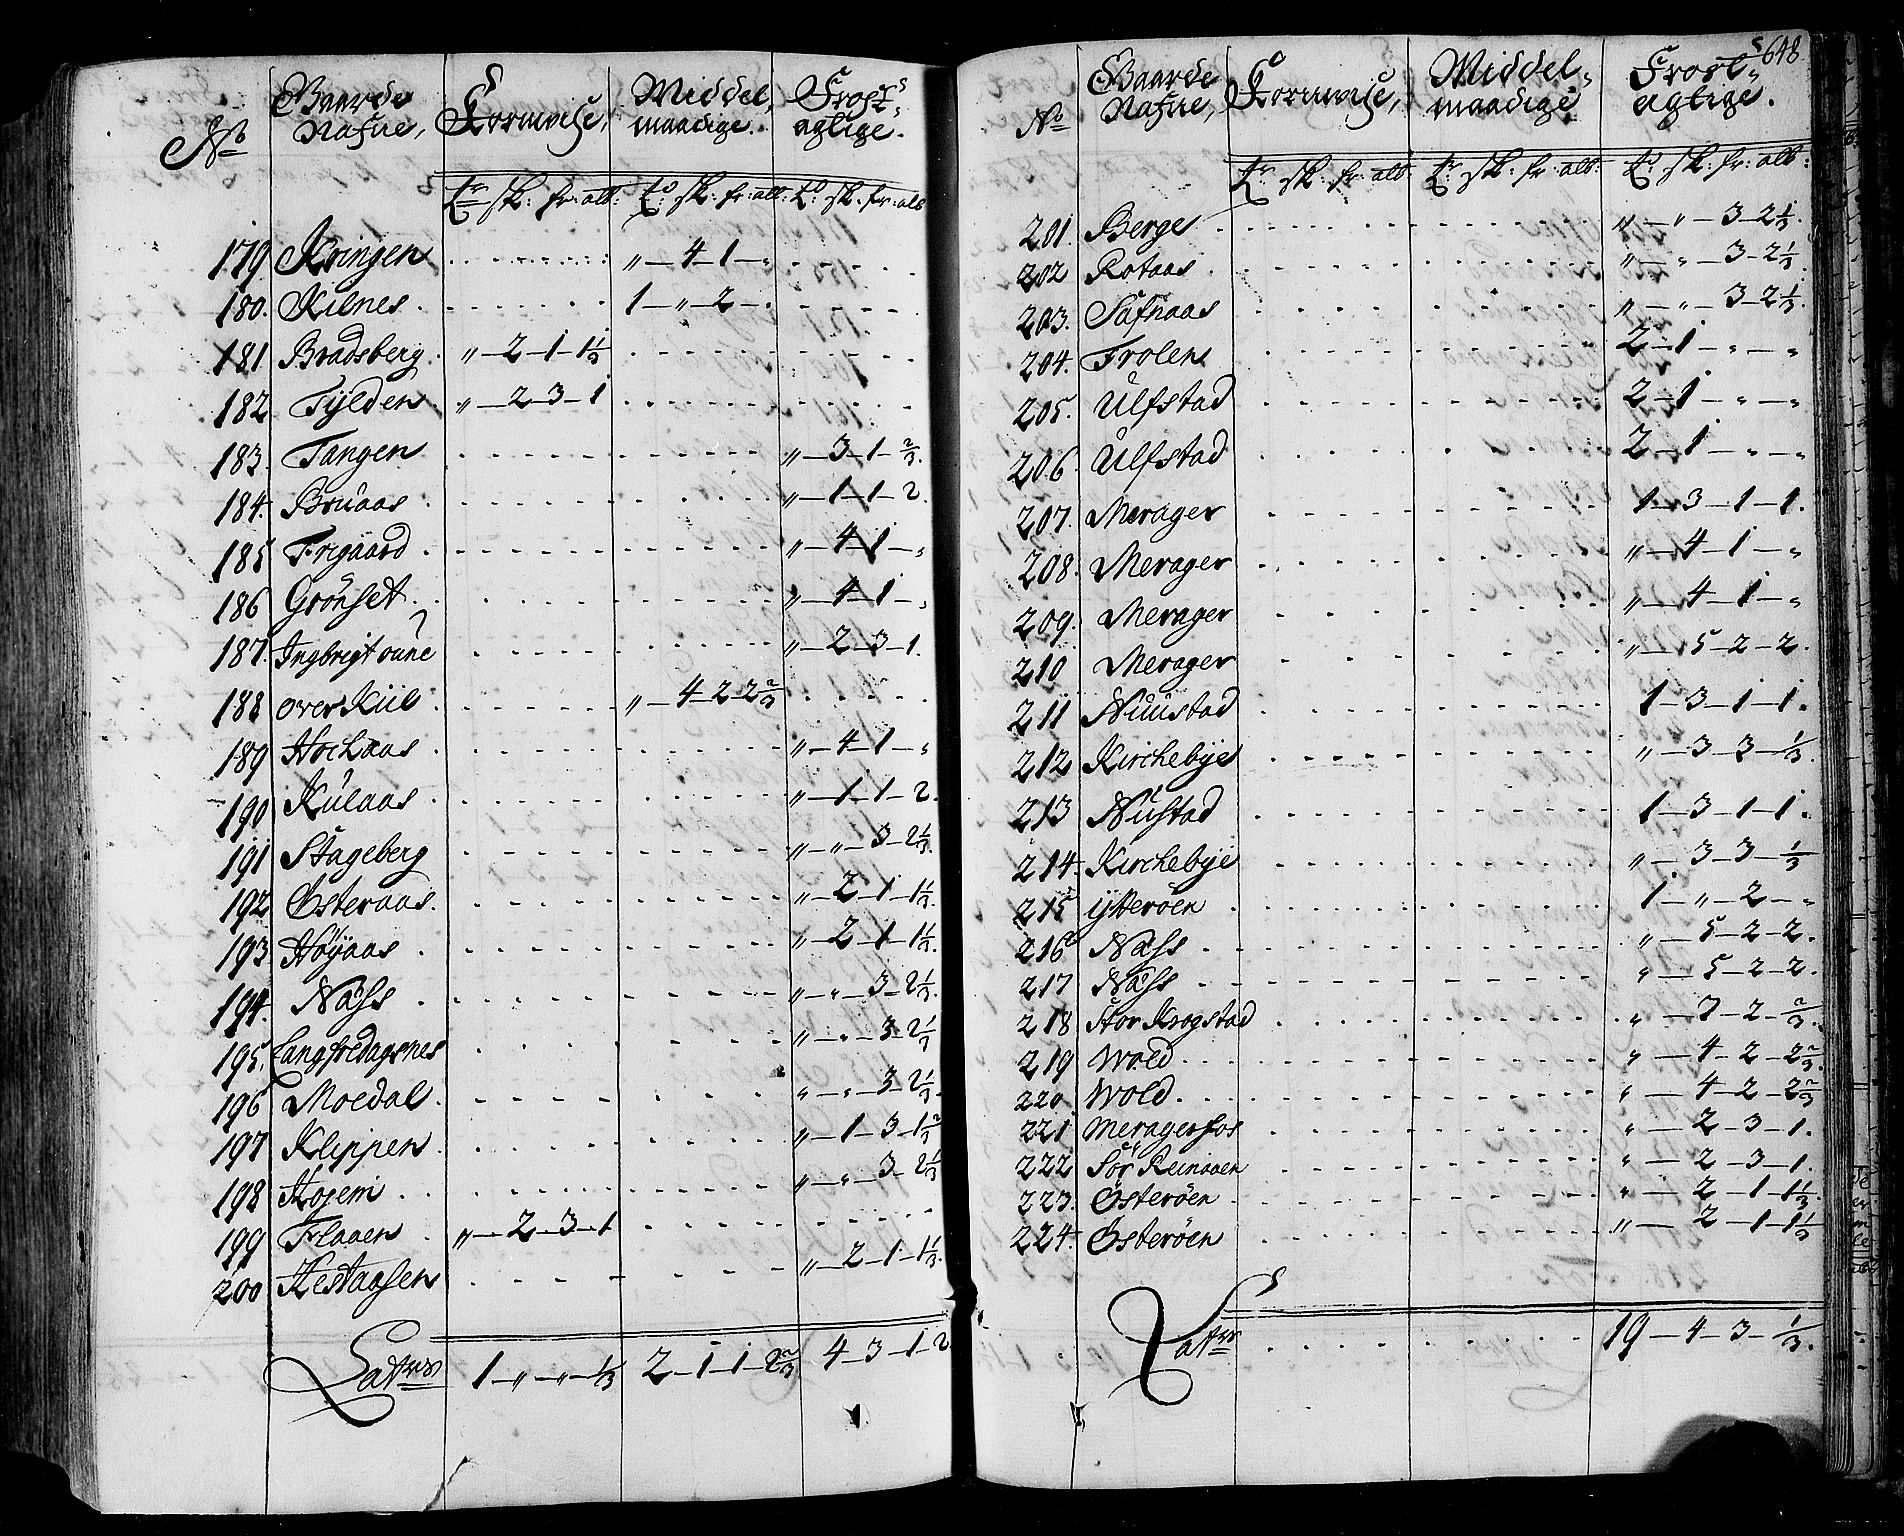 No Gaarde Nafne, Kornvise, Middel, maadige. Frost, agtige.
tr sk: fr: alb: to: sk: fr: alb: to: sk. fr: alb
179 Kringen . . . „ — 4 – 1 — „ . . .
180. Kilnes . . . . 1 — „ — 2 — „ . . .
181 Bradsberg . „ — 2 — 1 – 1 1/3 . . .
182 Fylden . „ — 2 – 3 – 1 . . .
183. Tangen . . . „ — 3 – 1 – 2/3.
184. Bruaas . . . „ — 1 – 1 – 2.
185 Frigaard . . . „ — 4 – 1 — „
186 Grönset . . . „ — 4 – 1 — „
187. Ingbrigt oune . . . „ — 2 – 3 – 1.
188 over Kiil . . . „ — 4 – 2 – 2 2/3 . . .
189 . . . „ — 4 – 1 — „
190 Kulaas . . . „ — 1 – 1 – 2.
191 Stageberg . . . „ — „ — 3 – 2 1/3.
192 Österaas . . . „ — 2 – 1 – 1 1/3.
193 Höÿaas . . . „ — 2 – 1 – 1 1/3.
194. Näss . . . „ — „ — 3 – 2 1/3.
195. Langfredagsnes . . . „ — „ — 3 – 2 1/3
196 Moedal . . . „ — „ — 3 – 2 1/3.
197 Klippen . . . „ — 1 – 3 – 1 2/3
198 Hojem . . . „ — „ — 3 – 2 1/3
199 Flaaen . „ — 2 – 3 – 1 . . .
200 Hestaasen . . . „ — 2 – 1 – 1 1/3.
Latter 1 – „ – „ – 1/3 2 – 1 – 1 – 2 2/3 4 – 3 – 1 – 2
648
No Gaarde Nafne, Kornvise, Middel, maadige Frost, agtige.
tr: sk: fr: alb tr: sk: fr: alb: to: sk: fr: alb:
201. Berge . . . „ — „ — 3 – 2 1/3.
202 Rotaas . . . „ — „ — 3 – 2 1/3.
203. Säfnaas . . . „ — „ — 3 – 2 1/3.
204. Frolen . . . 2 – 1 — „ — „
205. Ulfstad . . . 2 – 1 — „ — „
206. Ulfstad . . . 2 – 1 — „ — „
207. Merager . . . 1 – 3 – 1 – 1.
208. Merager . . . „ — 4 – 1 — „
209. Merager . . . „ — 4 – 1 — „
210 Merager . . . „ — 5 – 2 – 2.
211 Nüüstad . . . 1 – 3 – 1 – 1.
212 Kirchebÿe . . . „ — 3 – 3 – 1/3.
213 Nüstad . . . 1 – 3 – 1 – 1.
214. Kirchebÿe . . . „ — 3 – 3 – 1/3
215 ÿtteröen . . . 1 – „ – 2 – „
216 Näss . . . „ — 5 – 2 – 2.
217 Näss . . . „ — 5 – 2 – 2.
218 Stor Krogstad . . . „ — 7 – 2 – 2/3.
219 Wold . . . „ — 4 – 2 – 2 2/3.
220 Wold . . . „ — 4 – 2 – 2 2/3
221 Meragerfos . . . „ — 2 – 3 – 1.
222 Sör Reinaaen . . . „ — 2 – 3 – 1.
223. Österöen . . . „ — 2 – 1 – 1 1/3.
224. Österöen . . . „ — 2 – 1 – 1 1/3
Latter . . . 19 – 4 – 3 – 1/3.